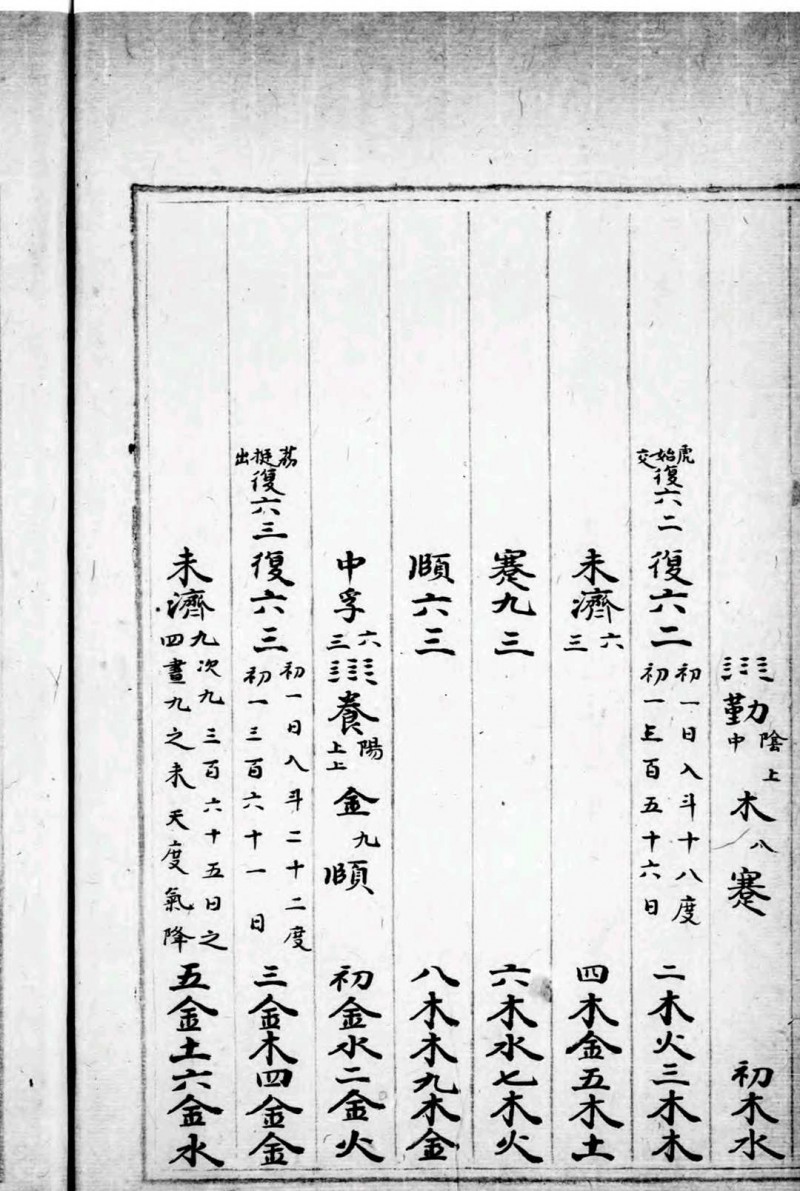 勤陰上中 木八 蹇 初木水
虎始交 復六二 復六二 初一日入斗十八度 初一三百五十六日 二木火三木木
未濟六三 四木金五木土
蹇九三 六木水七木火
頤六三 八木木九木金
中孚六三 養陽上上 金九 頤 初金水二金火
荔挺出 復六三 復六三 初一日入斗二十二度 初一三百六十一日 三金木四金金
未濟九四 次九三百六十五日之晝九之未天度氣降 五金土六金水